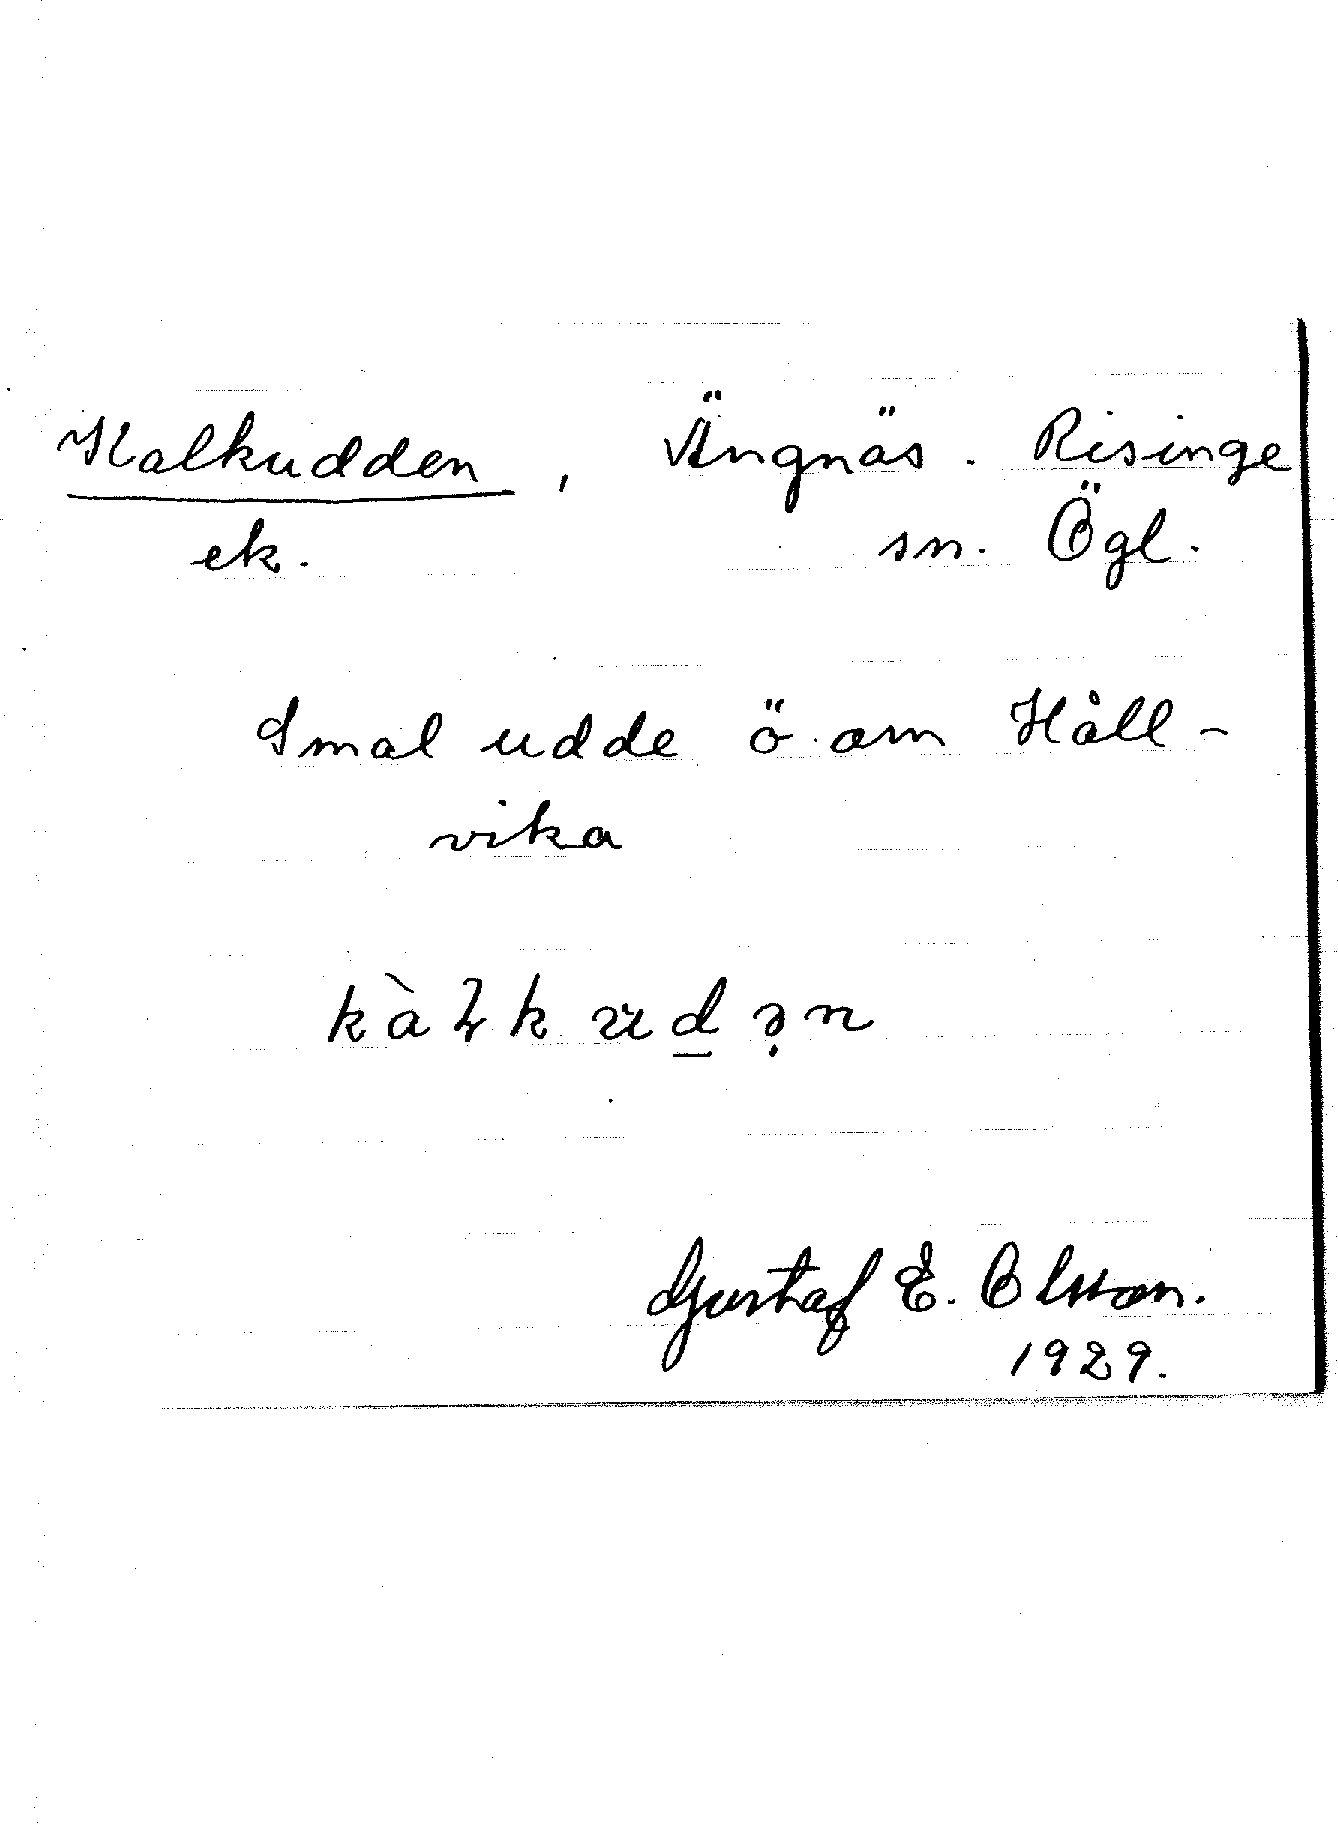 Kalkudden, Ängnäs. Risinge
ek. sn. Ögl.
Smal udde ö. om Håll-
vika
kàɫkudə̣n
Gustaf E. Olsson.
1929.